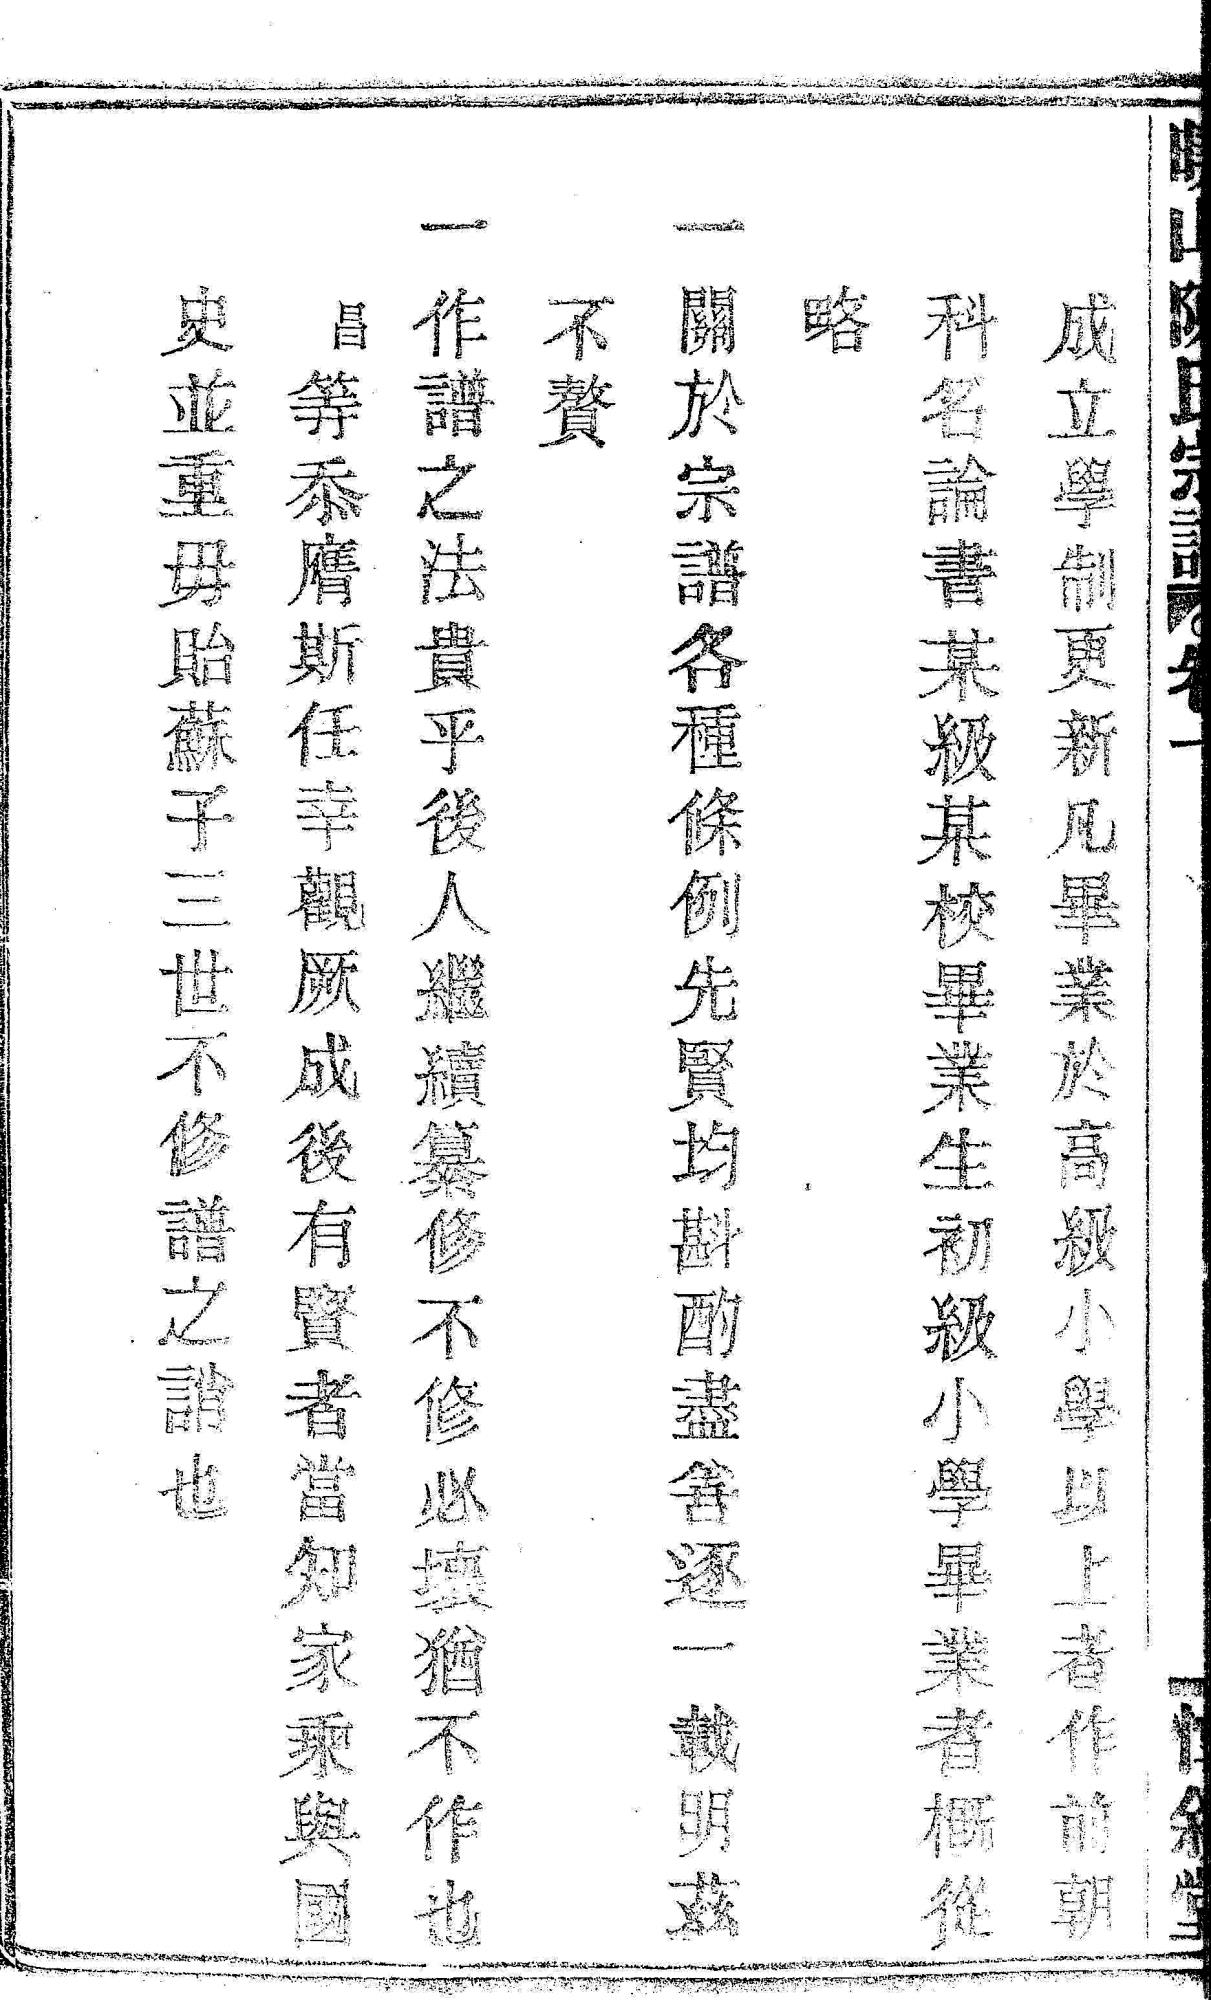 山陳氏宗譜 卷一
成立學制更新凡畢業於高級小學以上者作前朝
科名論書某級某校畢業生初級小學畢業者概從
略
一關於宗譜各種條例先賢均斟酌盡善逐一載明茲
不贅
一作譜之法貴乎後人繼續纂修不修必壞猶不作也
昌等忝膺斯任幸觀厥成後有賢者當知家乘與國
史並重毋貽蘇子三世不修譜之誚也